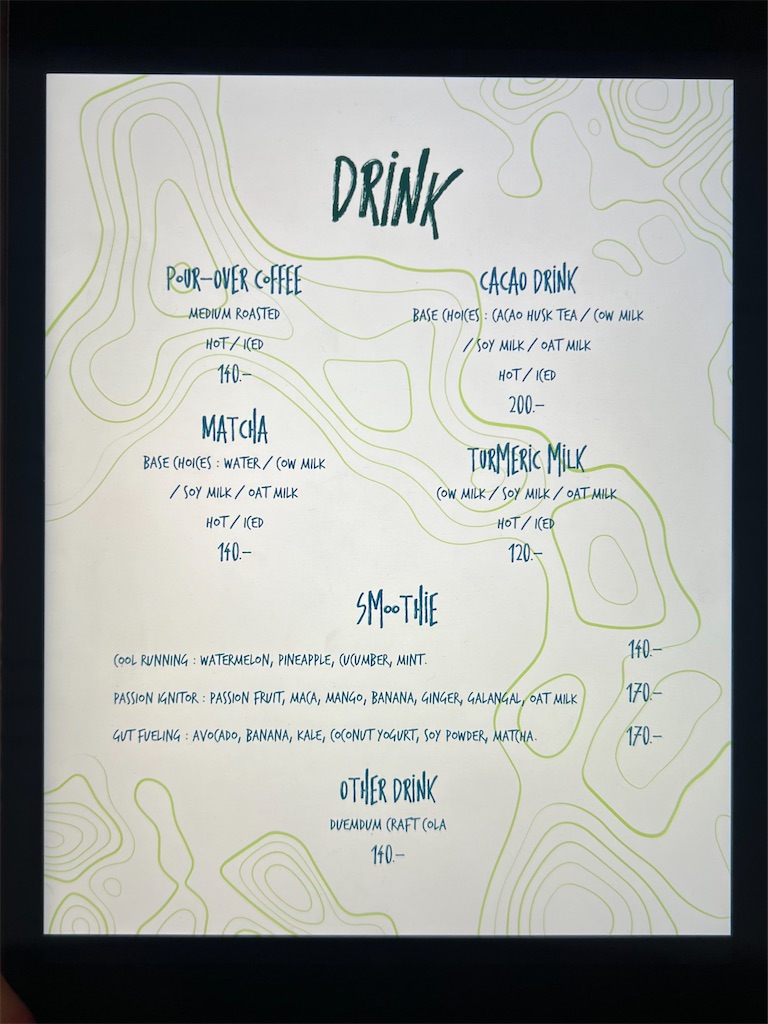 DRINK
POUR-OVER COFFEE
MEDIUM ROASTED
HOT / ICED
140.-
CACAO DRINK
BASE CHOICES : CACAO HUSK TEA / COW MILK
/ SOY MILK / OAT MILK
HOT / ICED
200.-
MATCHA
BASE CHOICES : WATER / COW MILK
/ SOY MILK / OAT MILK
HOT / ICED
140.-
TURMERIC MILK
COW MILK / SOY MILK / OAT MILK
HOT / ICED
120.-
SMOOTHIE
COOL RUNNING : WATERMELON, PINEAPPLE, CUCUMBER, MINT. 140.-
PASSION IGNITOR : PASSION FRUIT, MACA, MANGO, BANANA, GINGER, GALANGAL, OAT MILK 170.-
GUT FUELING : AVOCADO, BANANA, KALE, COCONUT YOGURT, SOY POWDER, MATCHA. 170.-
OTHER DRINK
DUEMDUM CRAFT COLA
140.-